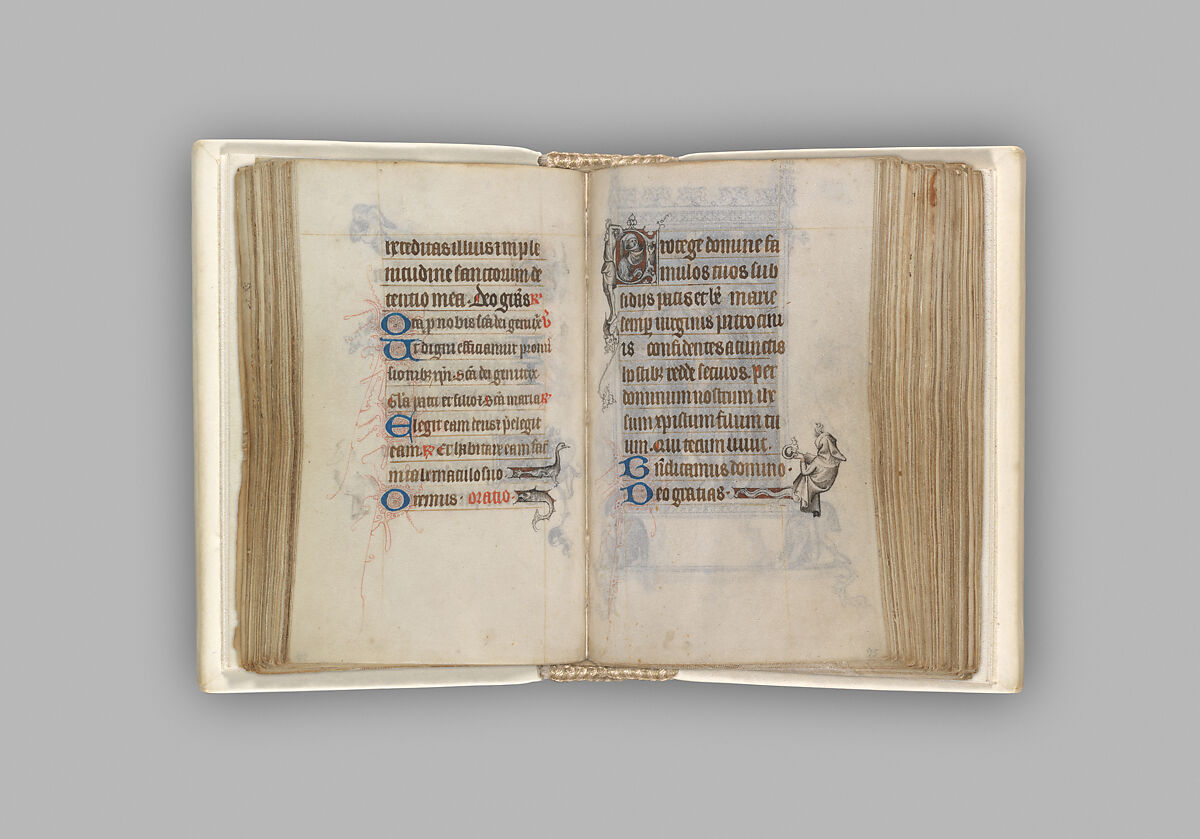 hereditas illius et in ple
nitudine sanctorum de
tentio mea. Deo gr̄as R'
Ora p nobis sc̄a dei genitrix V̄
Ut digni efficiamur promi
sionib; xp̄i. Sc̄a dei genitrix
Gl̄a patri et filio et Sc̄a maria R'
Elegit eam deus et p̄elegit
eam. R' Et habitare eam fac̄
in tabernaculo suo
Oremus. oratio.
Protege domine fa
mulos tuos sub
sidiis pacis et be᷑ marie
semp uirginis patrocini
is confidentes a cunctis
hostib; redde securos. per
dominum nostrum ihe
sum xpistum filium tu
um. Qui tecum uiuit.
Bn̄dicamus domino.
Deo gratias.
95